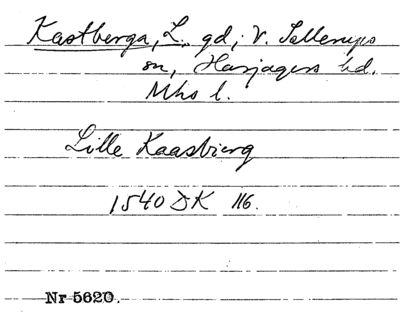 Kastberga, L. gd, V. Sallerups
sn, Harjagers hd.
Mhs l.
Lille Kaasbierg
1540 DK 116.
Nr 5620.